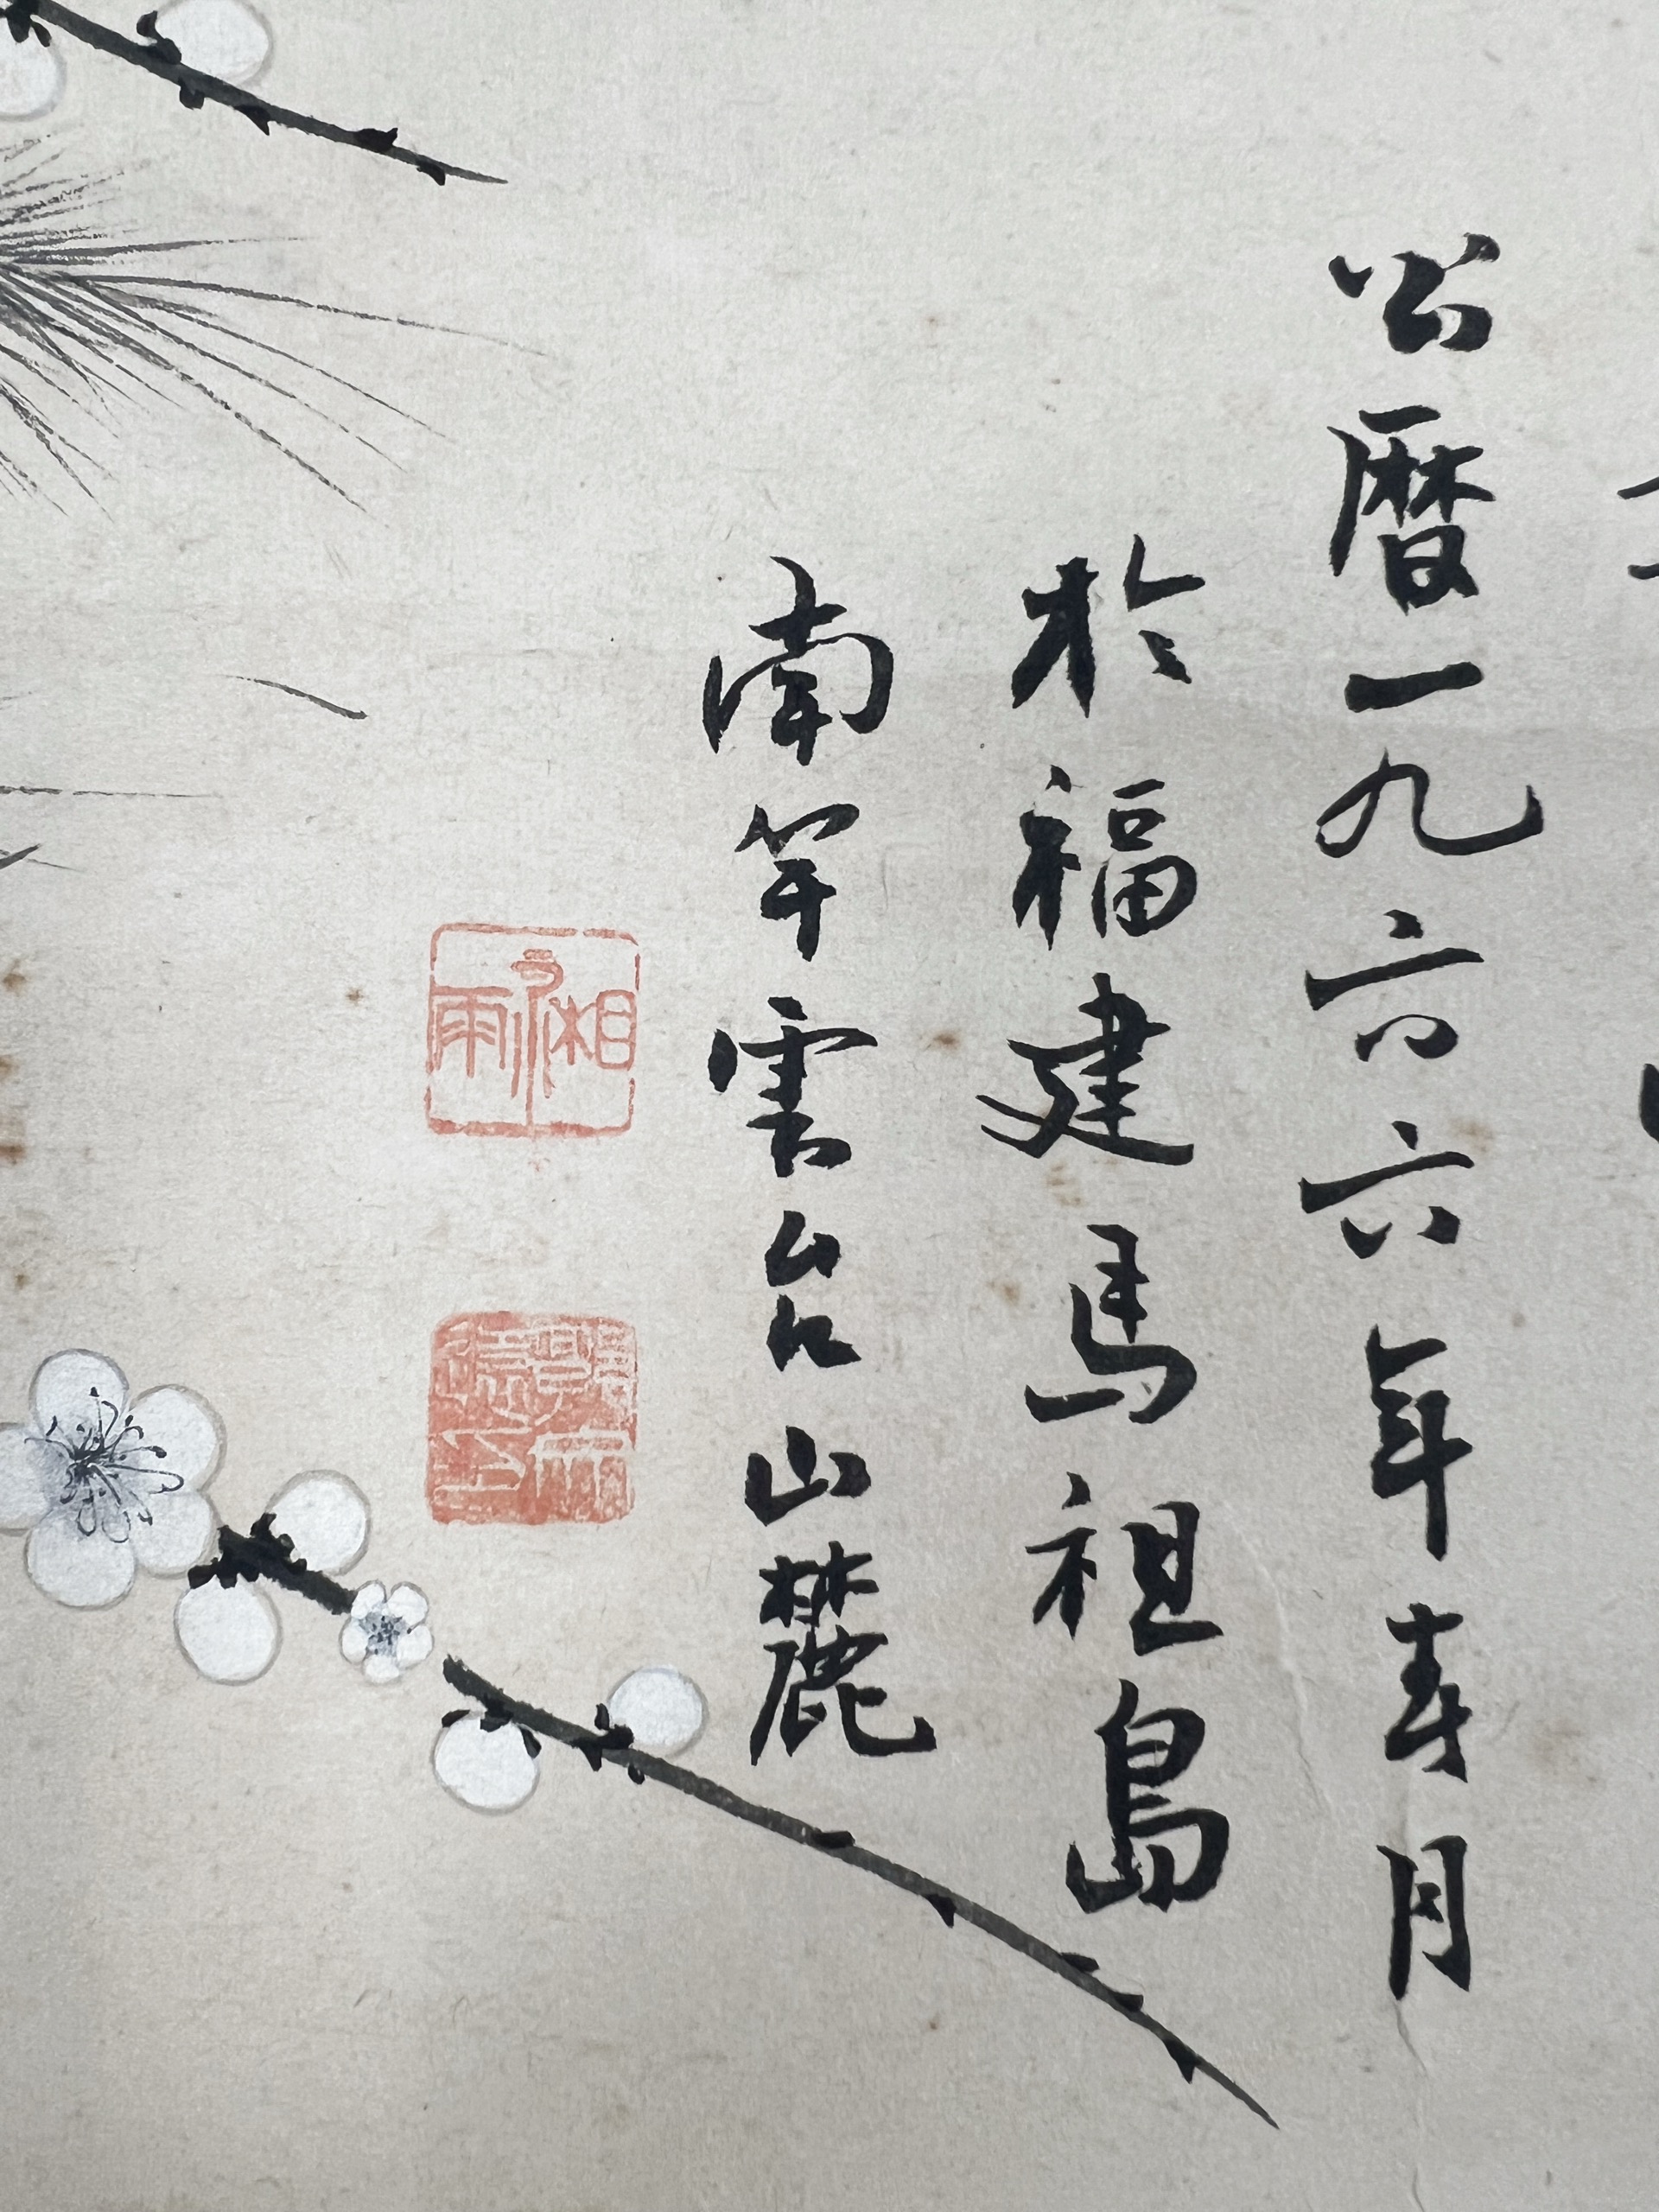 公曆一九六六年春月
於福建馬祖島
南竿雲台山麓